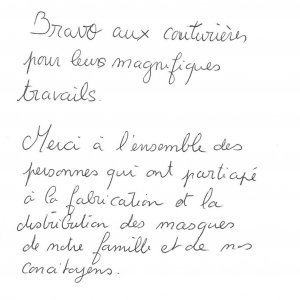 Bravo aux couturières
pour leurs magnifiques
travails.
Merci à l'ensemble des
personnes qui ont participé
à la fabrication et la
distribution des masques
de notre famille et de nos
concitoyens.